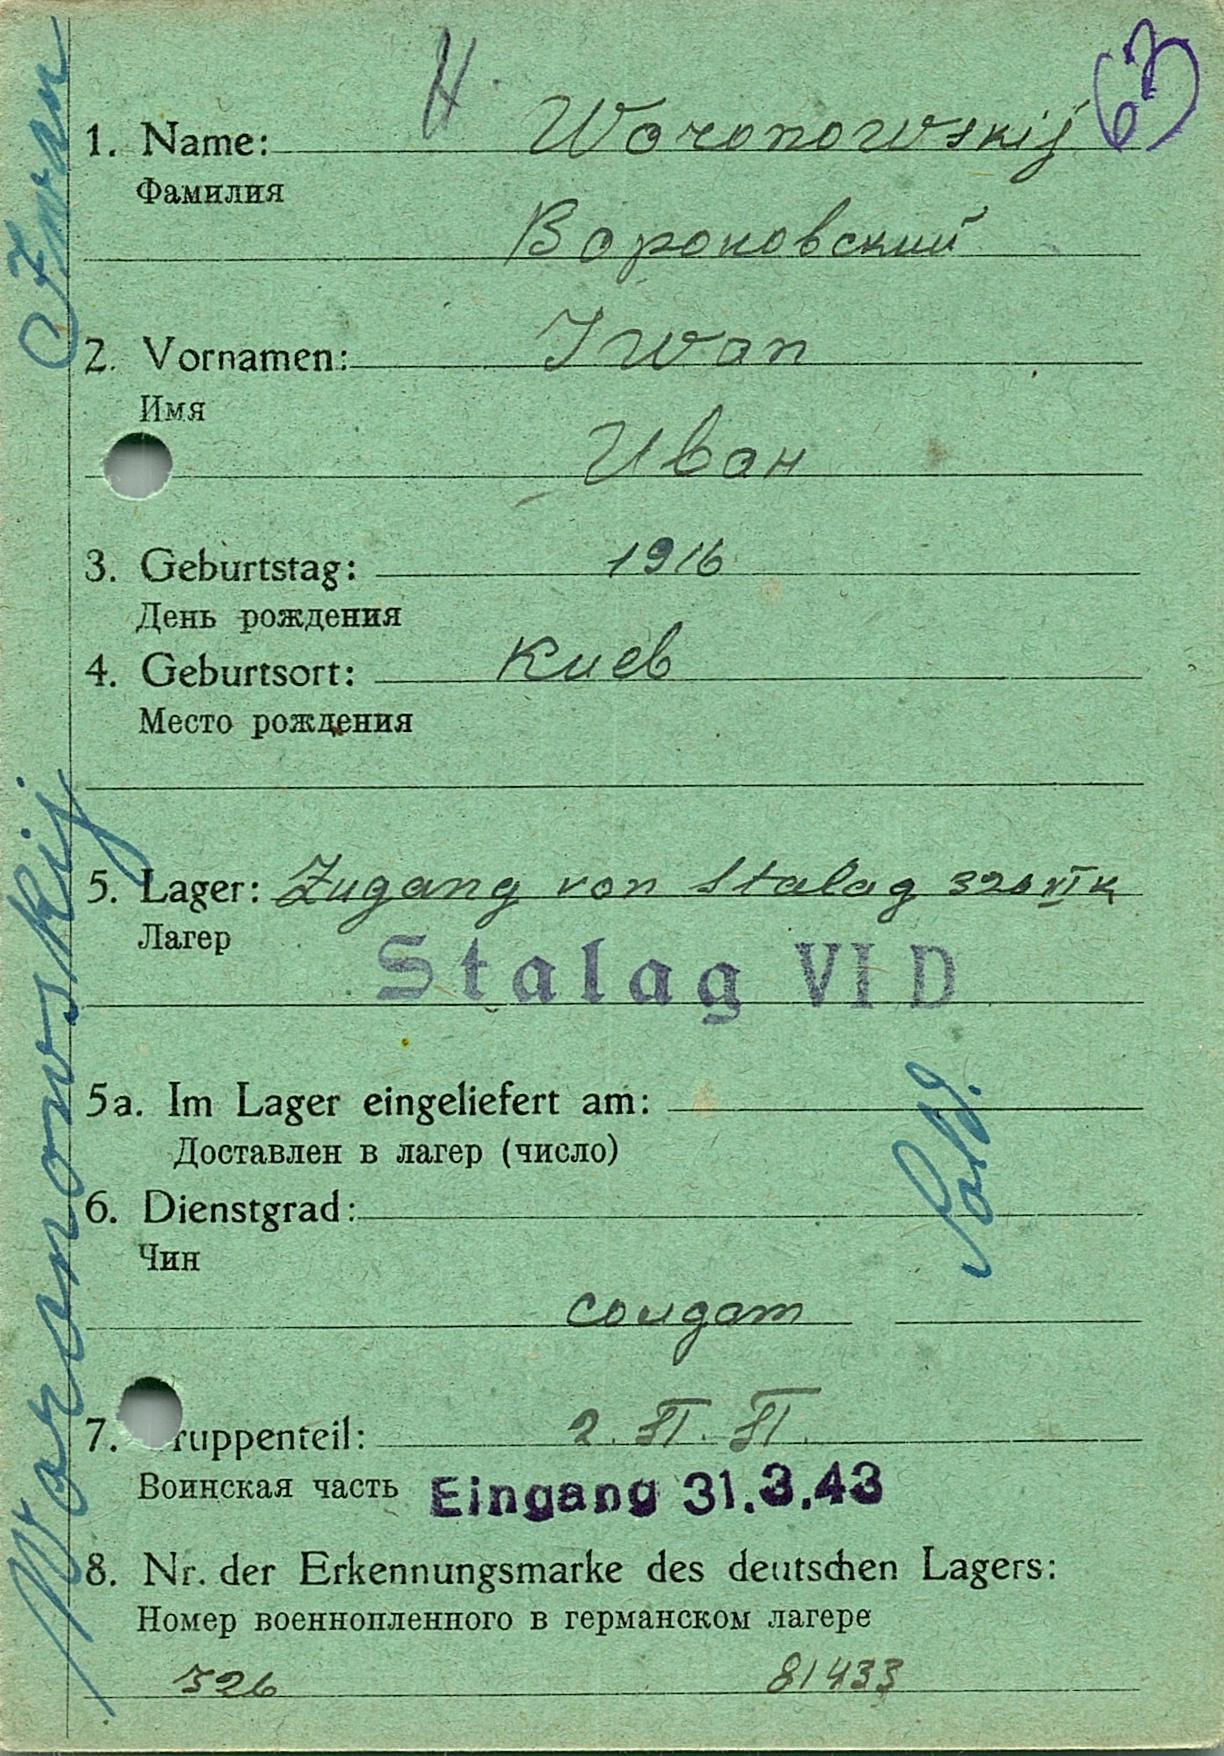 H.
63
1. Name: Woronowskij
Фамилия
Вороновский
2. Vornamen: Iwan
Имя
Иван
3. Geburtstag: 1916
День рождения
4. Geburtsort: Киев
Место рождения
5. Lager: Zugang von Stalag 326 VI K
Лагер
Stalag VI D
5a. Im Lager eingeliefert am:
Доставлен в лагер (число)
Sold.
6. Dienstgrad:
Чин
солдат
7. ruppenteil: 2. П. П.
Воинская часть
Eingang 31.3.43
8. Nr. der Erkennungsmarke des deutschen Lagers:
Номер военнопленного в германском лагере
326 81433
Woronowskij Iwan